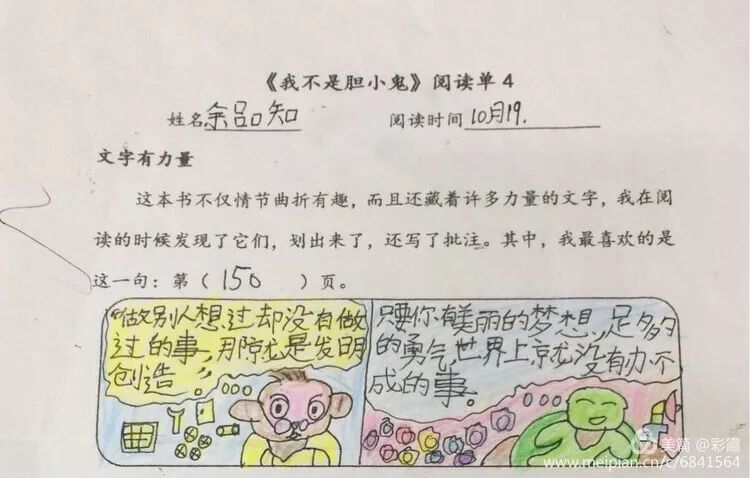 《我不是胆小鬼》阅读单4
姓名余品知 阅读时间10月19.
文字有力量
这本书不仅情节曲折有趣，而且还藏着许多力量的文字，我在阅
读的时候发现了它们，划出来了，还写了批注。其中，我最喜欢的是
这一句：第（150）页。
“做别人想过却没有做
过的事，那就是发明
创造。”
只要你有美丽的梦想，足够
的勇气，世界上就没有办不
成的事。
美篇@彩霞
www.meipian.cn/c/6841564